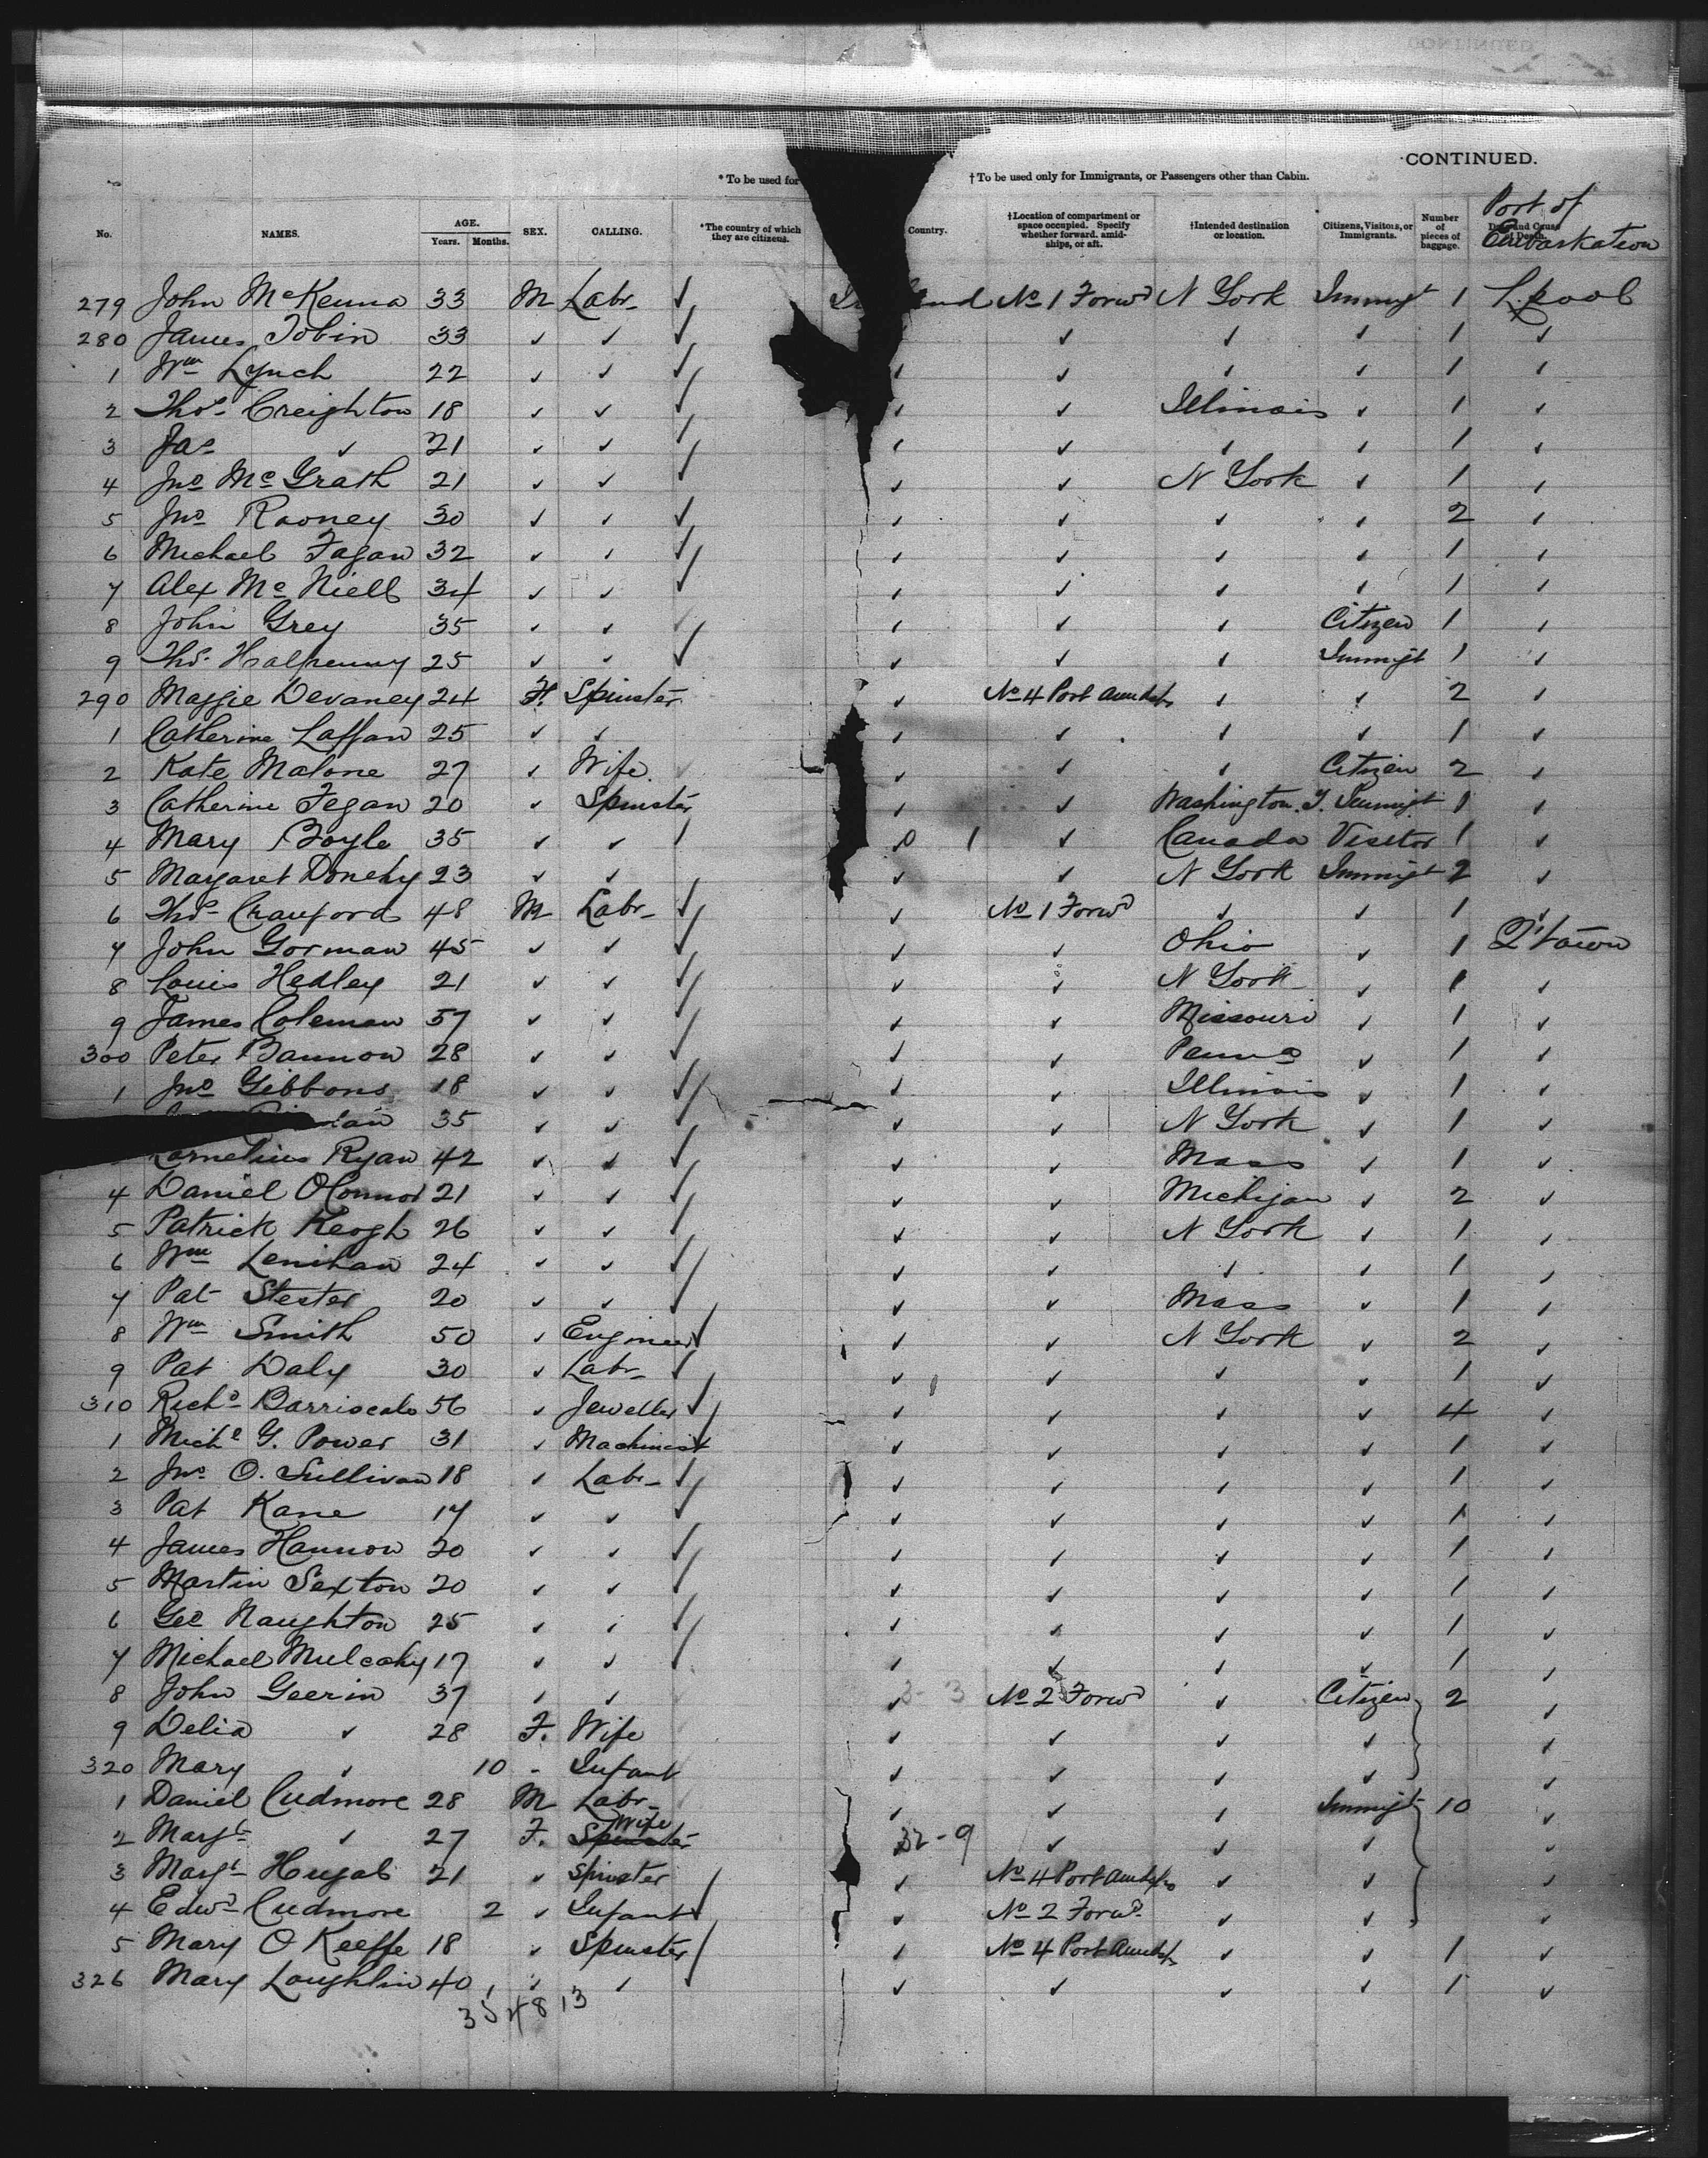 CONTINUED.
* To be used for
† To be used only for Immigrants, or Passengers other than Cabin.
No. NAMES. AGE. Years. Months. SEX. CALLING. *The country of which they are citizens. Country. †Location of compartment or space occupied. Specify whether forward, amidships, or aft. †Intended destination or location. Citizens, Visitors, or Immigrants. Number of pieces of baggage. Date and Cause of Death. Port of Embarkation
279 John McKenna 33 M Labr ✓ No 1 Forwd N York Immigt 1 L.pool
280 James Tobin 33 ✓ ✓ ✓ ✓ ✓ ✓ 1 ✓
1 Wm Lynch 22 ✓ ✓ ✓ ✓ ✓ ✓ ✓ 1 ✓
2 Thos Creighton 18 ✓ ✓ ✓ ✓ ✓ Illinois ✓ 1 ✓
3 Jas ✓ 21 ✓ ✓ ✓ ✓ ✓ ✓ ✓ 1 ✓
4 Jno McGrath 21 ✓ ✓ ✓ ✓ ✓ N York ✓ 1 ✓
5 Jno Rooney 30 ✓ ✓ ✓ ✓ ✓ ✓ ✓ 2 ✓
6 Michael Fagan 32 ✓ ✓ ✓ ✓ ✓ ✓ ✓ 1 ✓
7 Alex McNiell 34 ✓ ✓ ✓ ✓ ✓ ✓ ✓ 1 ✓
8 John Grey 35 ✓ ✓ ✓ ✓ ✓ ✓ Citizen 1 ✓
9 Thos. Halpenny 25 ✓ ✓ ✓ ✓ ✓ ✓ Immigt 1 ✓
290 Maggie Devaney 24 F. Spinster ✓ No 4 Port Amidsps ✓ ✓ 2 ✓
1 Catherine Laffan 25 ✓ ✓ ✓ ✓ ✓ ✓ 1 ✓
2 Kate Malone 27 ✓ Wife ✓ ✓ ✓ ✓ Citizen 2 ✓
3 Catherine Fegan 20 ✓ Spinster ✓ ✓ Washington. T. Immigt 1 ✓
4 Mary Boyle 35 ✓ ✓ ✓ 0 1 ✓ Canada Visitor 1 ✓
5 Margaret Donehy 23 ✓ ✓ ✓ ✓ N York Immigt 2 ✓
6 Thos Crauford 48 M Labr ✓ ✓ No 1 Forwd ✓ ✓ 1 ✓
7 John Gorman 45 ✓ ✓ ✓ ✓ ✓ Ohio ✓ 1 Q'town
8 Louis Hedley 21 ✓ ✓ ✓ ✓ ✓ N York ✓ 1 ✓
9 James Coleman 57 ✓ ✓ ✓ ✓ ✓ Missouri ✓ 1 ✓
300 Peter Bannon 28 ✓ ✓ ✓ ✓ ✓ Penna ✓ 1 ✓
1 Jno Gibbons 18 ✓ ✓ ✓ ✓ ✓ Illinois ✓ 1 ✓
35 ✓ ✓ ✓ ✓ ✓ N York ✓ 1 ✓
Cornelius Ryan 42 ✓ ✓ ✓ ✓ ✓ Mass ✓ 1 ✓
4 Daniel OConnor 21 ✓ ✓ ✓ ✓ ✓ Michigan ✓ 2 ✓
5 Patrick Keogh 26 ✓ ✓ ✓ ✓ ✓ N York ✓ 1 ✓
6 Wm Lenihan 24 ✓ ✓ ✓ ✓ ✓ ✓ ✓ 1 ✓
7 Pat Stester 20 ✓ ✓ ✓ ✓ ✓ Mass ✓ 1 ✓
8 Wm Smith 50 ✓ Engineer ✓ ✓ ✓ N York ✓ 2 ✓
9 Pat Daly 30 ✓ Labr ✓ ✓ ✓ ✓ ✓ 1 ✓
310 Richd Barriscale 56 ✓ Jeweller ✓ ✓ ✓ ✓ ✓ 4 ✓
1 Michl G. Power 31 ✓ Machinist ✓ ✓ ✓ ✓ ✓ 1 ✓
2 Jno. O. Sullivan 18 ✓ Labr ✓ ✓ ✓ ✓ ✓ 1 ✓
3 Pat Kane 17 ✓ ✓ ✓ ✓ ✓ ✓ ✓ 1 ✓
4 James Hannon 20 ✓ ✓ ✓ ✓ ✓ ✓ ✓ 1 ✓
5 Martin Sexton 20 ✓ ✓ ✓ ✓ ✓ ✓ ✓ 1 ✓
6 Geo Naughton 25 ✓ ✓ ✓ ✓ ✓ ✓ ✓ 1 ✓
7 Michael Mulcahy 17 ✓ ✓ ✓ ✓ ✓ ✓ ✓ 1 ✓
8 John Geerin 37 ✓ ✓ ✓ 3-3 No 2 Forwd ✓ Citizen 2 ✓
9 Delia ✓ 28 F. Wife ✓ ✓ ✓ ✓ ✓
320 Mary ✓ 10 - Infant ✓ ✓ ✓ ✓ ✓
1 Daniel Cudmore 28 M Labr ✓ ✓ ✓ ✓ Immigt 10 ✓
2 Margt ✓ 27 F. Spinster Wife 32-9 ✓ ✓ ✓ ✓
3 Margt Hugal 21 ✓ Spinster ✓ No 4 Port Amidsps ✓ ✓ ✓
4 Edwd Cudmore 2 ✓ Infant ✓ ✓ No 2 Forwd. ✓ ✓ ✓
5 Mary O Keeffe 18 ✓ Spinster ✓ ✓ No 4 Port Amidsps ✓ ✓ 1 ✓
326 Mary Loughlin 40 ✓ ✓ ✓ ✓ ✓ ✓ ✓ 1 ✓
35 48 13